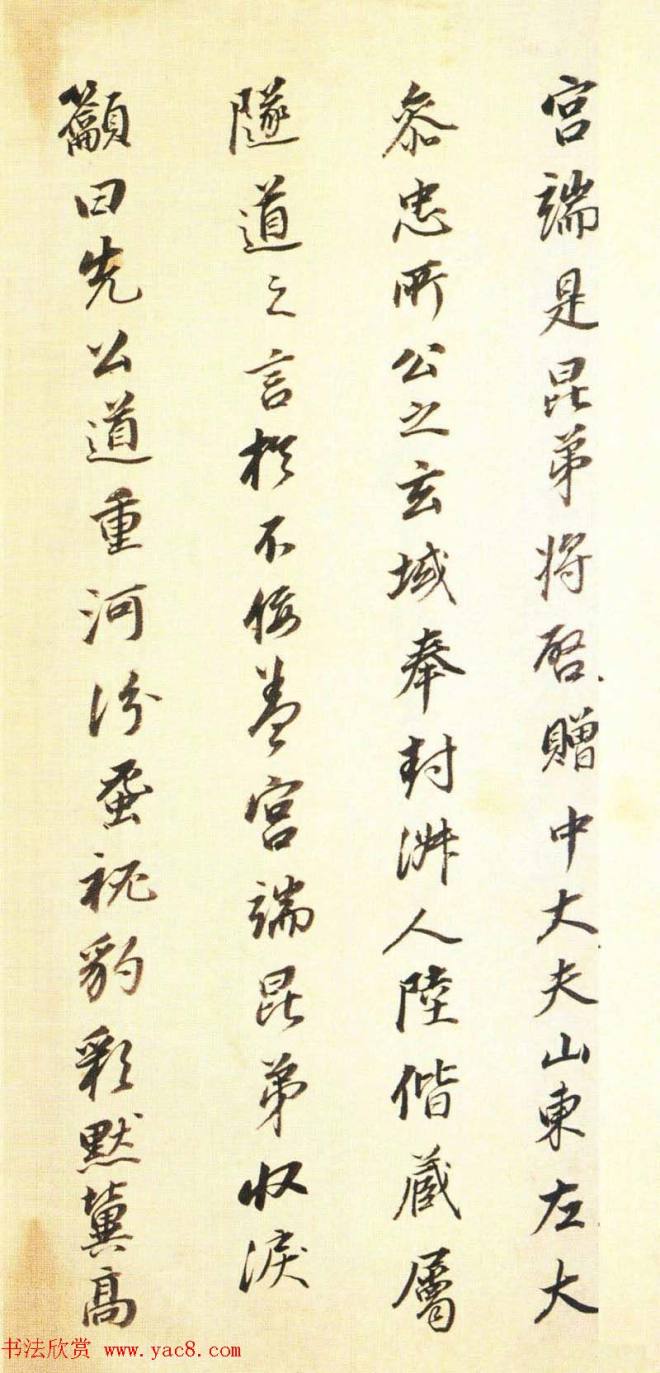 宫端是昆弟将啓赠中大夫山東左大
叅忠所公之玄域奉封淋人陸偕蔵屬
隧道之言於不佞盖宫端昆弟收淚
籲曰先公道重河汾蚤秘豹彩默冀高
书法欣赏 www.yac8.com